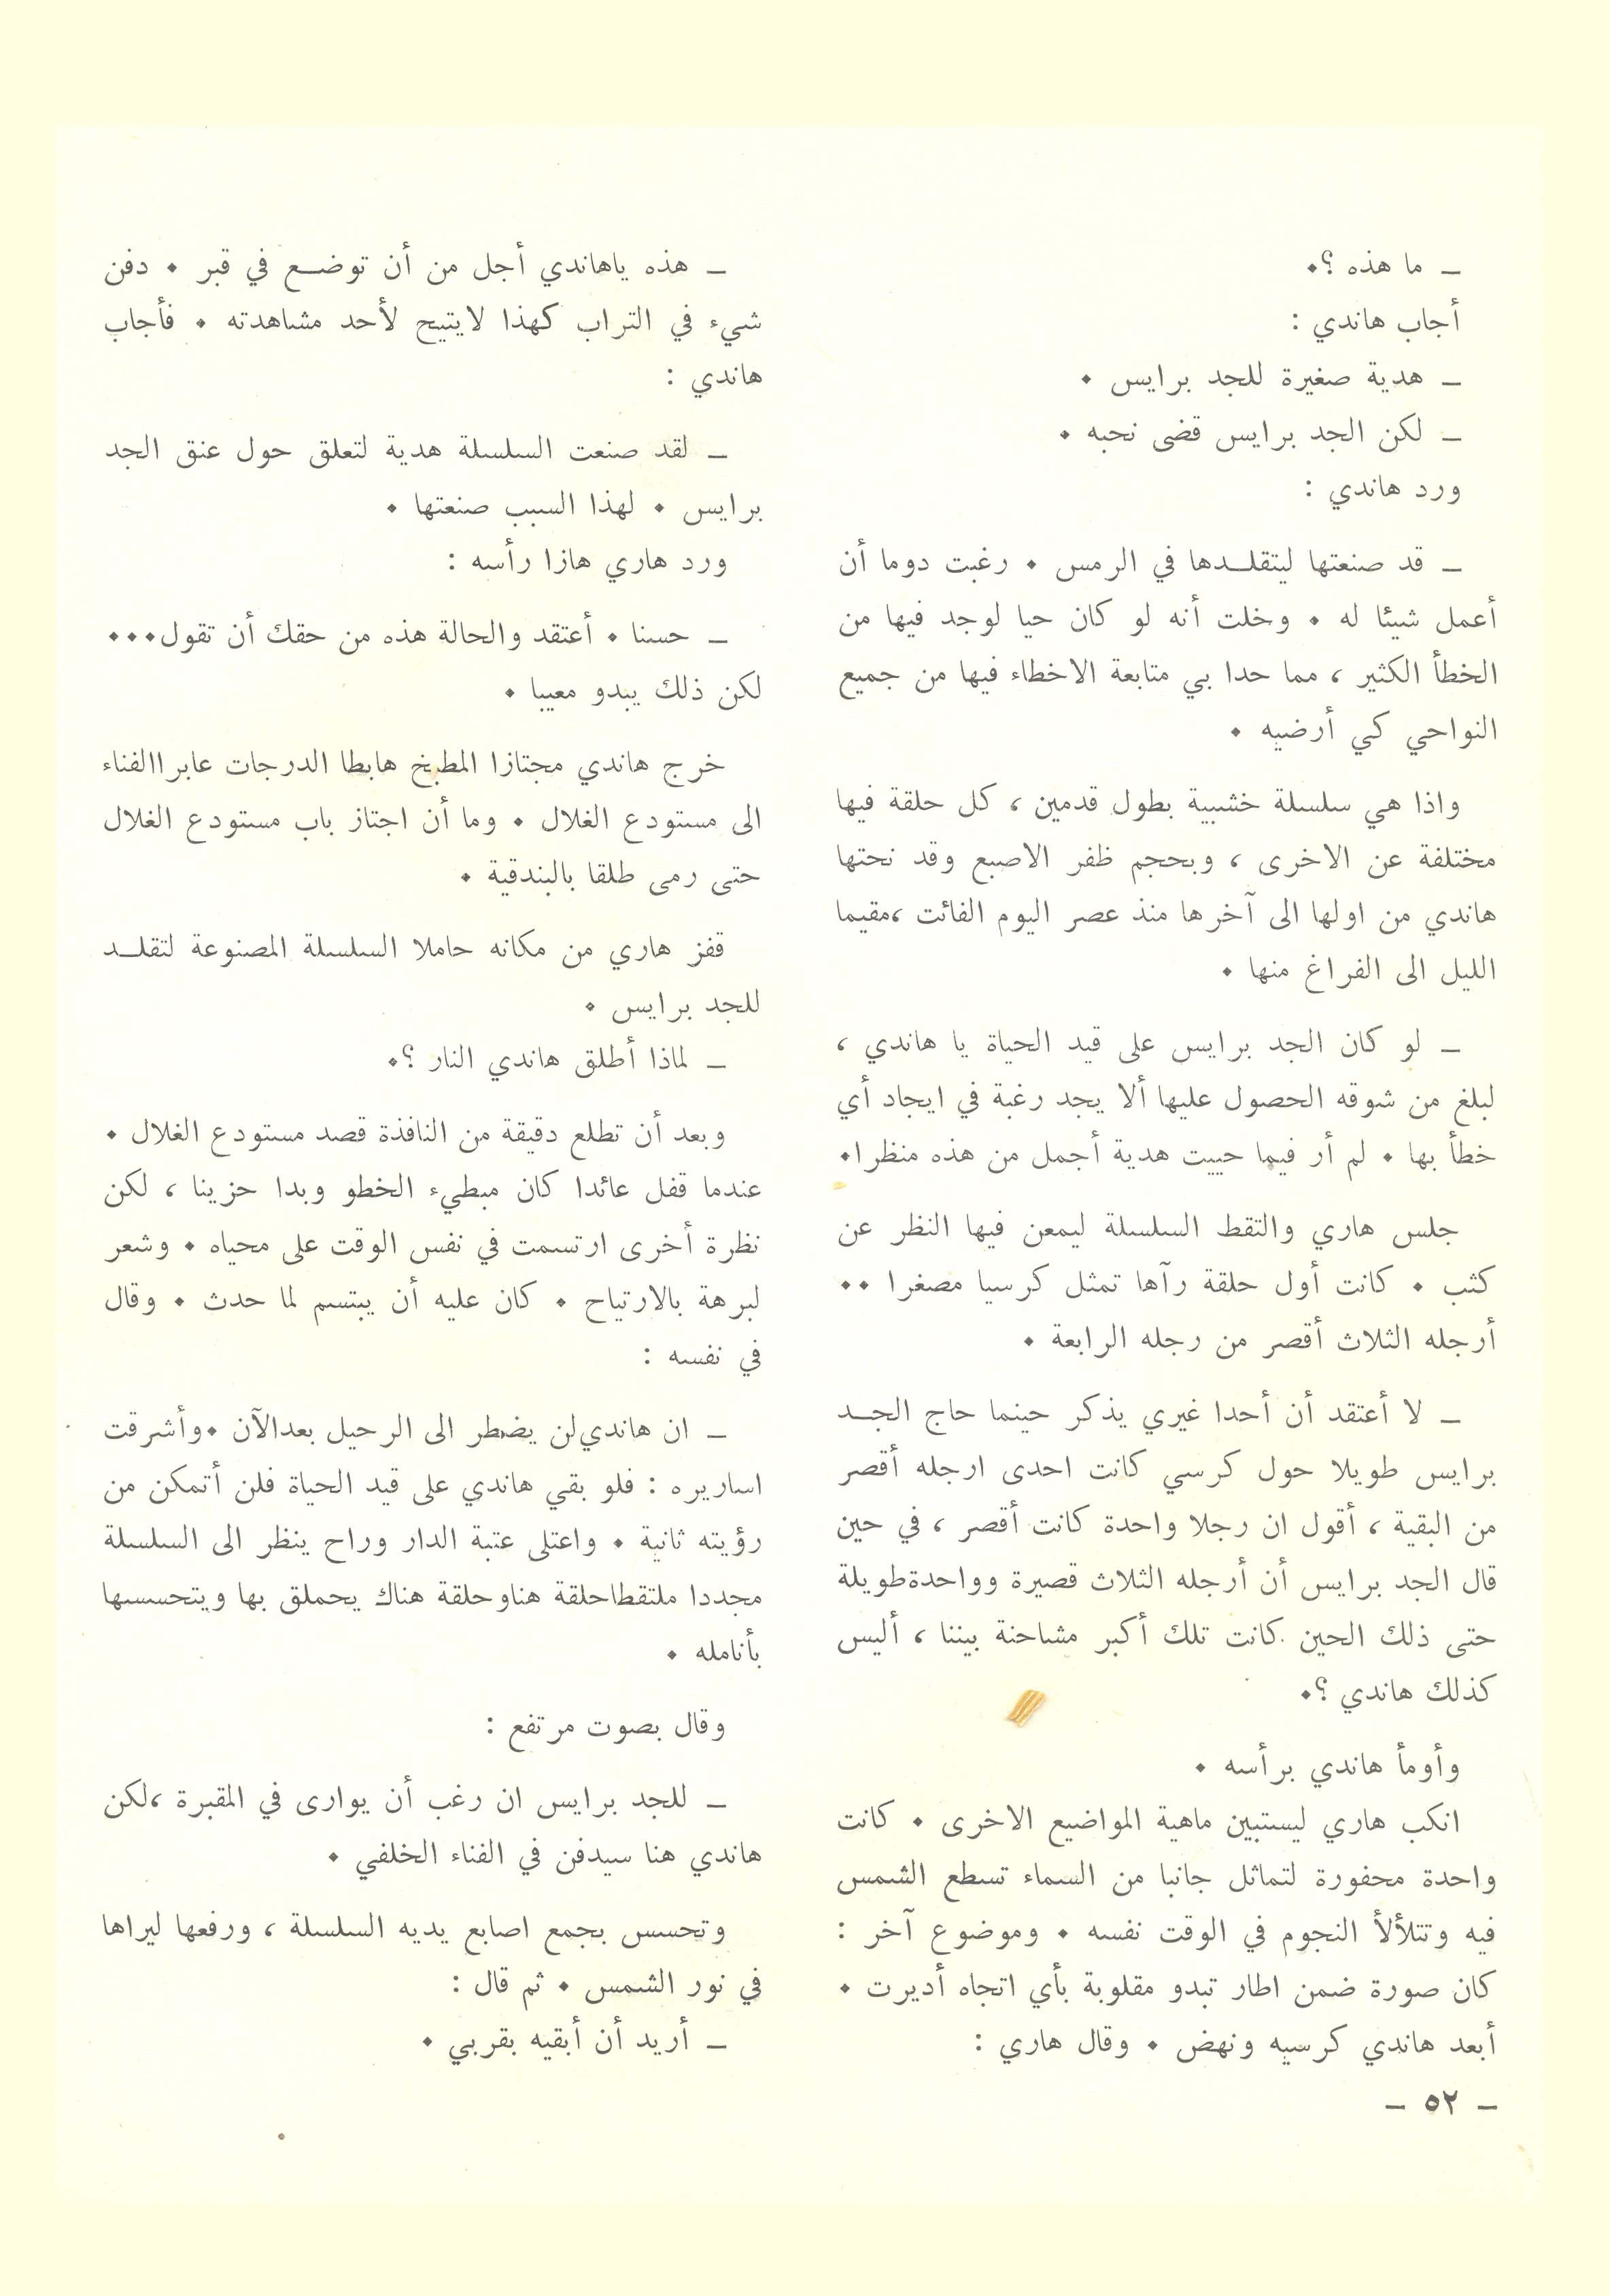 ـ ما هذه ؟.
أجاب هاندي :
ـ هدية صغيرة للجد برايس .
ـ لكن الجد برايس قضى نحبه .
ورد هاندي :
ـ قد صنعتها ليتقلـدها في الرمس . رغبت دوما أن
أعمل شيئا له . وخلت أنه لو كان حيا لوجد فيها من
الخطأ الكثير ، مما حدا بي متابعة الاخطاء فيها من جميع
النواحي كي أرضيه .
واذا هي سلسلة خشبية بطول قدمين ، كل حلقة فيها
مختلفة عن الاخرى ، وبحجم ظفر الاصبع وقد نحتها
هاندي من اولها الى آخرها منذ عصر اليوم الفائت ،مقيما
الليل الى الفراغ منها .
ـ لو كان الجد برايس على قيد الحياة يا هاندي ،
لبلغ من شوقه الحصول عليها ألا يجد رغبة في ايجاد أي
خطأ بها . لم أر فيما حييت هدية أجمل من هذه منظرا.
جلس هاري والتقط السلسلة ليمعن فيها النظر عن
كثب . كانت أول حلقة رآها تمثل كرسيا مصغرا ..
أرجله الثلاث أقصر من رجله الرابعة .
ـ لا أعتقد أن أحدا غيري يذكر حينما حاج الجـد
برايس طويلا حول كرسي كانت احدى ارجله أقصر
من البقية ، أقول ان رجلا واحدة كانت أقصر ، في حين
قال الجد برايس أن أرجله الثلاث قصيرة وواحدةطويلة
حتى ذلك الحين كانت تلك أكبر مشاحنة بيننا ، أليس
كذلك هاندي ؟.
وأومأ هاندي برأسه .
انكب هاري ليستبين ماهية المواضيع الاخرى . كانت
واحدة محفورة لتماثل جانبا من السماء تسطع الشمس
فيه وتتلألأ النجوم في الوقت نفسه . وموضوع آخر :
كان صورة ضمن اطار تبدو مقلوبة بأي اتجاه أديرت .
أبعد هاندي كرسيه ونهض . وقال هاري :
ـ هذه ياهاندي أجل من أن توضـع في قبر . دفن
شيء في التراب كهذا لايتيح لأحد مشاهدته . فأجاب
هاندي :
ـ لقد صنعت السلسلة هدية لتعلق حول عنق الجد
برايس . لهذا السبب صنعتها .
ورد هاري هازا رأسه :
ـ حسنا . أعتقد والحالة هذه من حقك أن تقول...
لكن ذلك يبدو معيبا .
خرج هاندي مجتازا المطبخ هابطا الدرجات عابراالفناء
الى مستودع الغلال . وما أن اجتاز باب مستودع الغلال
حتى رمى طلقا بالبندقية .
قفز هاري من مكانه حاملا السلسلة المصنوعة لتقلـد
للجد برايس .
ـ لماذا أطلق هاندي النار ؟.
وبعد أن تطلع دقيقة من النافذة قصد مستودع الغلال .
عندما قفل عائدا كان مبطيء الخطو وبدا حزينا ، لكن
نظرة أخرى ارتسمت في نفس الوقت على محياه . وشعر
لبرهة بالارتياح . كان عليه أن يبتسم لما حدث . وقال
في نفسه :
ـ ان هاندي‌لن يضطر الى الرحيل بعدالآن .وأشرقت
اساريره : فلو بقي هاندي على قيد الحياة فلن أتمكن من
رؤيته ثانية . واعتلى عتبة الدار وراح ينظر الى السلسلة
مجددا ملتقطاحلقة هناوحلقة هناك يحملق بها ويتحسسها
بأنامله .
وقال بصوت مرتفع :
ـ للجد برايس ان رغب أن يوارى في المقبرة ،لكن
هاندي هنا سيدفن في الفناء الخلفي .
وتحسس بجمع اصابع يديه السلسلة ، ورفعها ليراها
في نور الشمس . ثم قال :
ـ أريد أن أبقيه بقربي .
ـ ٥٢ ـ